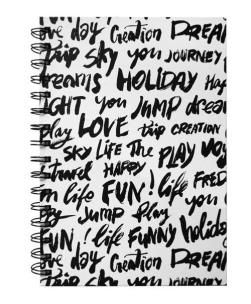 ove day Creation DREAM
Trip SKY you JOURNEY
Dreams HOLIDAY Hap
IGHT you JUMP dream
play LOVE trip CREATION
SKY LIFE The PLAY
travel HAPPY
life FUN! life FRED
Jump Play you
FUN! life FUNNY holida
ove day Creation DREAM
Trip SKY you JOURNEY